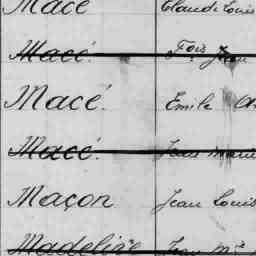 Macé Claude Louis
Macé. Fois Jean
Macé. Emile
Macé. Jean Marie
Maçon Jean Louis
Madeline Jean Mie